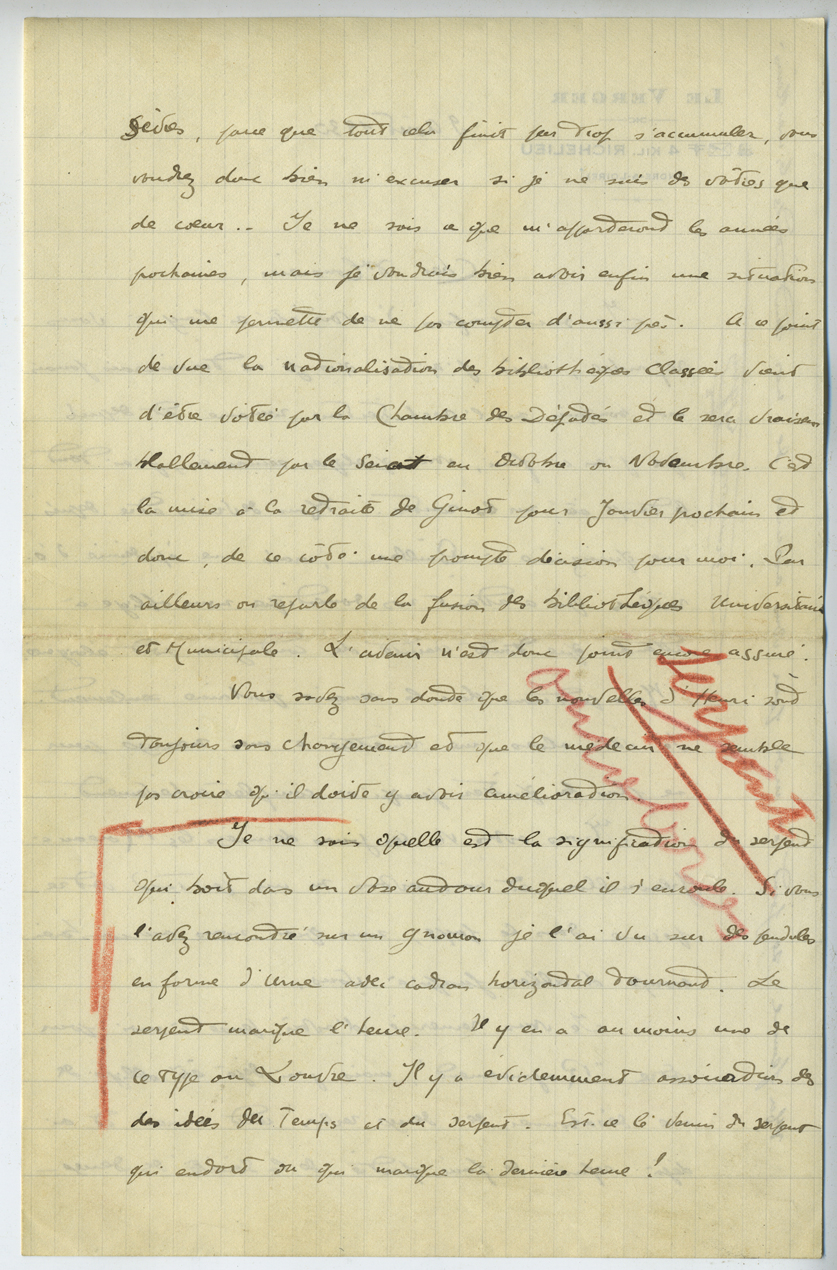 , parce que tout cela finit par trop s'accumuler, vous
voudrez donc bien m'excuser si je ne suis des vôtres que
de cœur.. Je ne sais ce que m'apporteront les années
prochaines, mais je voudrais bien avoir enfin une situation
qui me permette de ne pas compter d'aussi près. A ce point
de vue la nationalisation des bibliothèques classées vient
d'être votée par la Chambre des Députés et le sera vraisem
blablement par le Sénat en Octobre ou Novembre. C'est
la mise à la retraite de Ginot pour Janvier prochain et
donc, de ce côté une prompte décision pour moi. Par
ailleurs on reparle de la fusion des bibliothèques Universitaire
et Municipale. L'avenir n'est donc point encore assuré.
Vous savez sans doute que les nouvelles d'Henri sont
toujours sans changement et que le médecin ne semble
pas croire qu'il doive y avoir amélioration.
Je ne sais quelle est la signification du serpent
qui boit dans un vase autour duquel il s'enroule. Si vous
l'avez rencontré sur un gnomon je l'ai vu sur des pendules
en forme d'urne avec cadran horizontal tournant. Le
serpent marque l'heure. Il y en a au moins une de
ce type au Louvre. Il y a évidemment association des
des idées du Temps et du serpent. Est-ce le venin du serpent
qui endort ou qui marque la dernière heure !
serpent